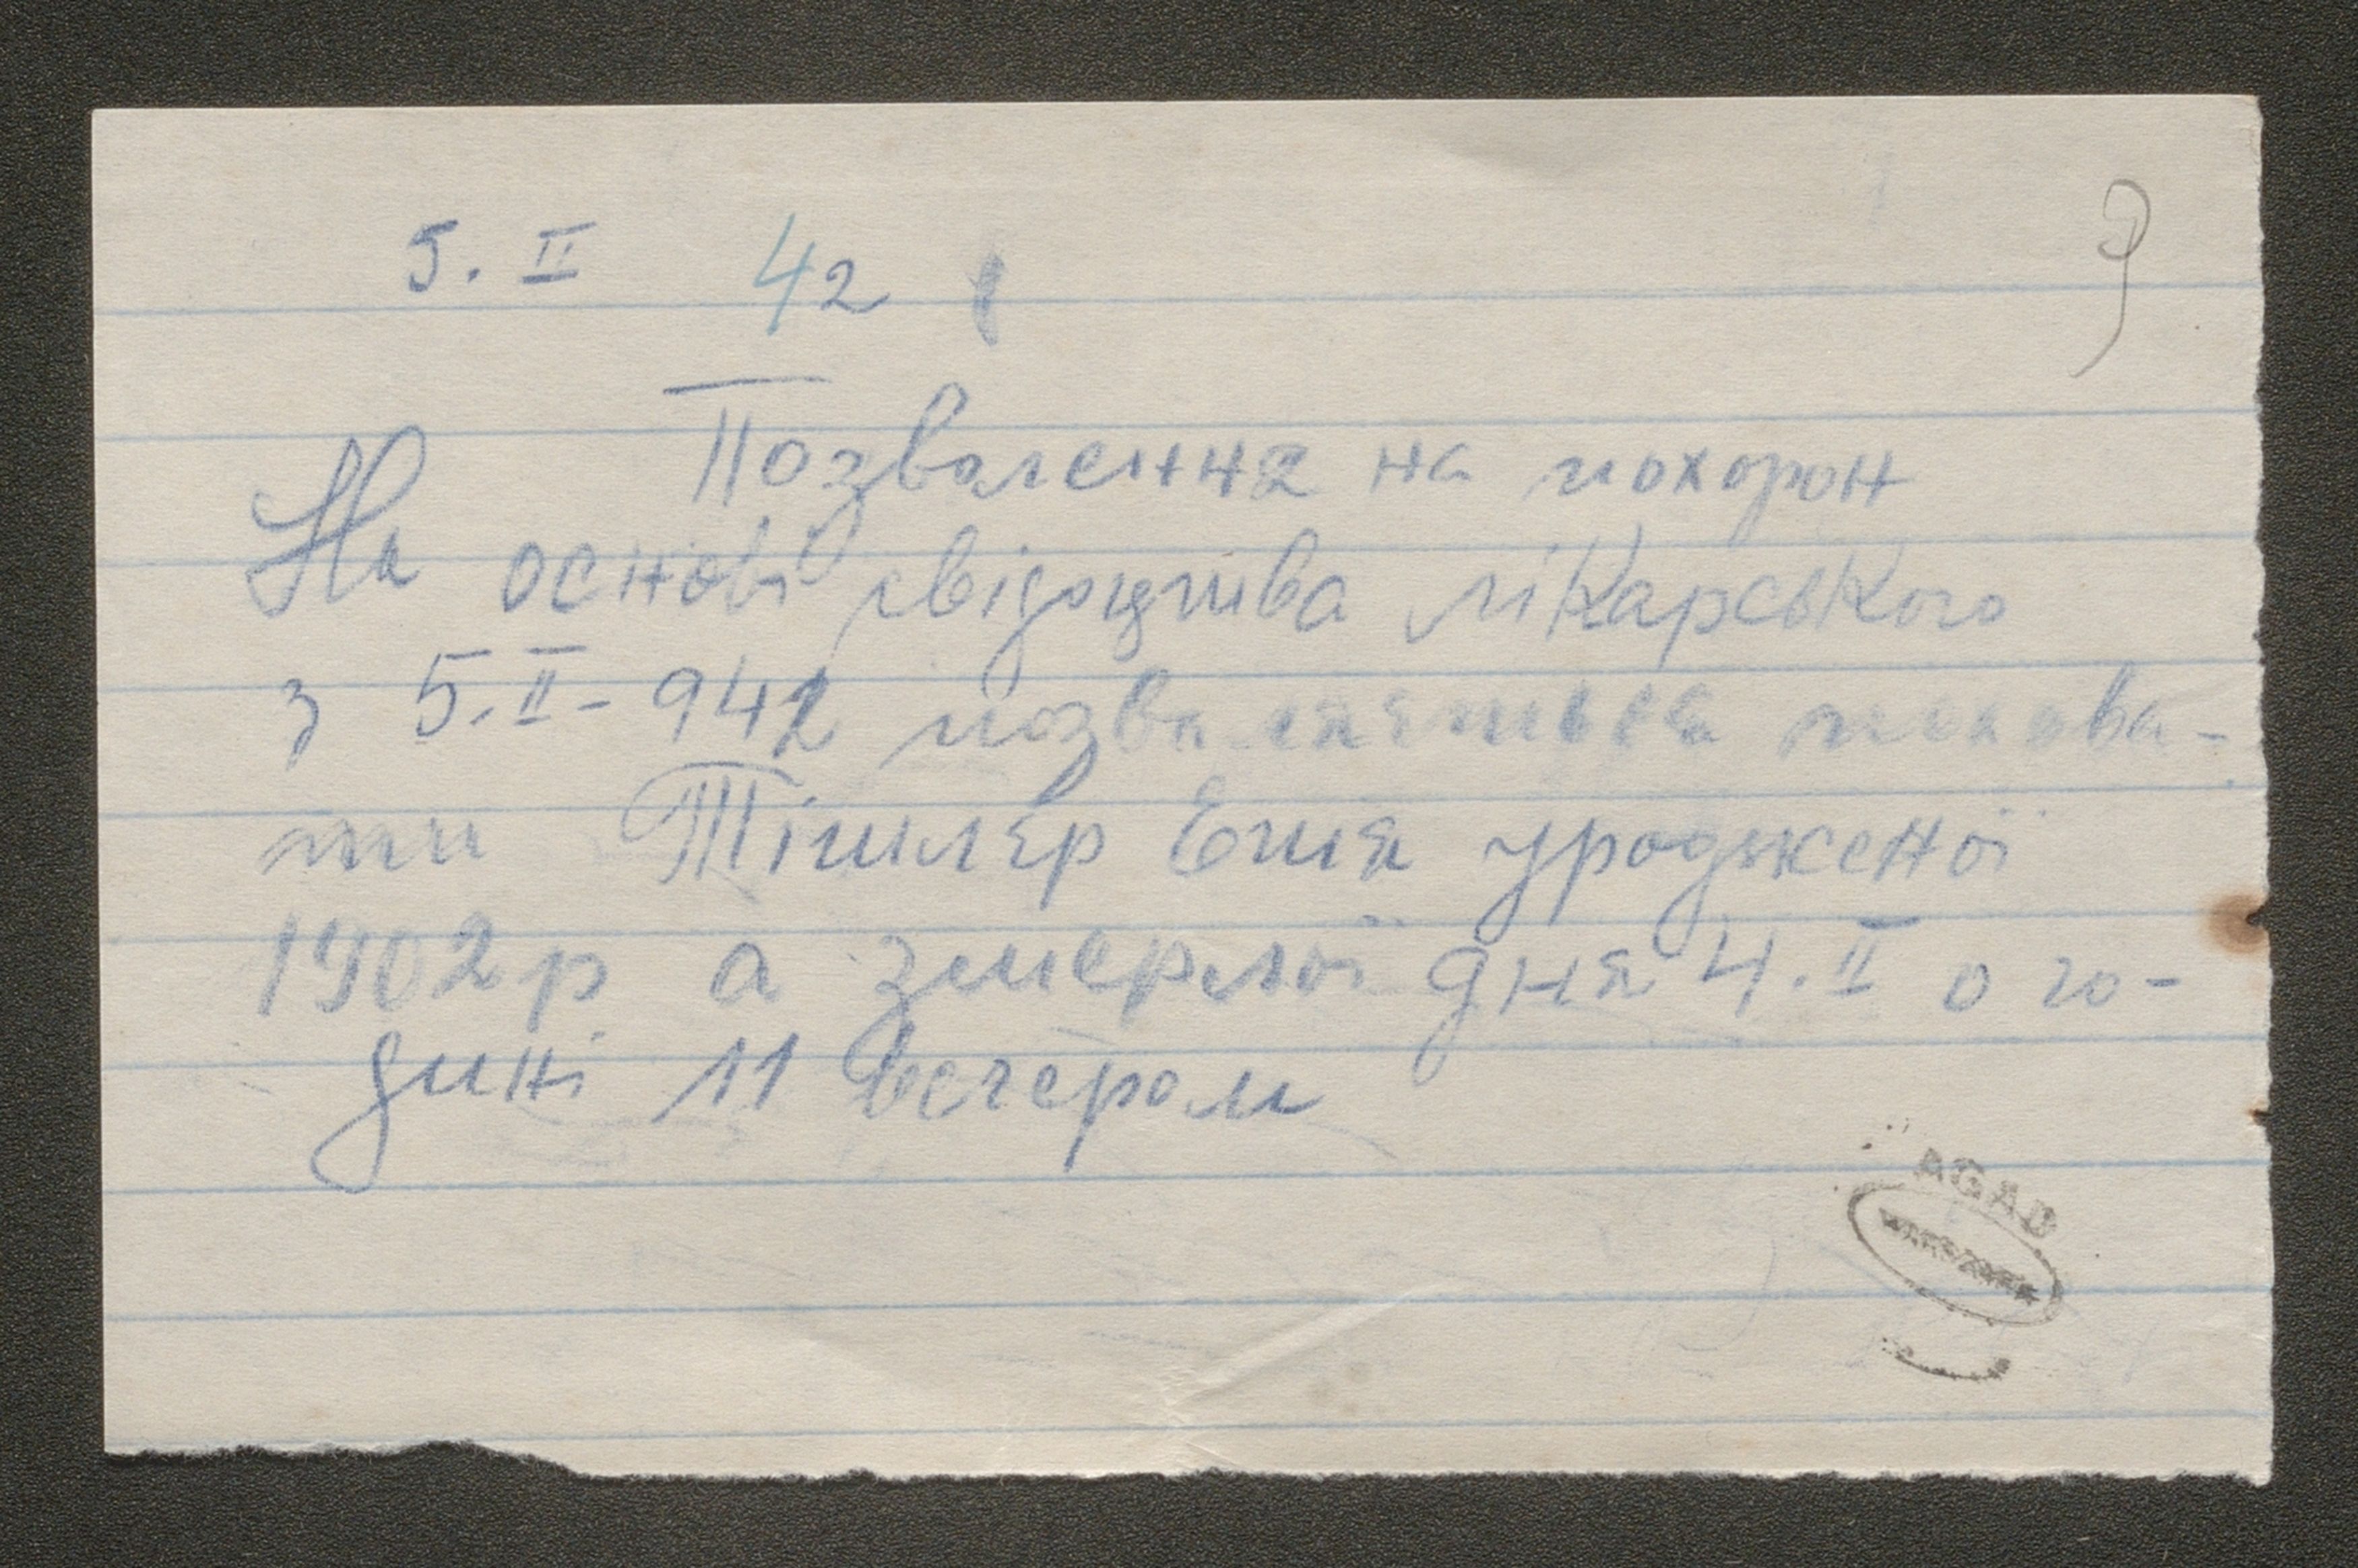 9
5. II 42
Позволення на похорон
На основі свідоцтва лікарського
з 5.II-942 позваляється похова-
ти Тішлєр Еття уродженої
1902 р а змерлої дня 4.II о го-
дині 11 вечером
AGAD
WARSZAWA